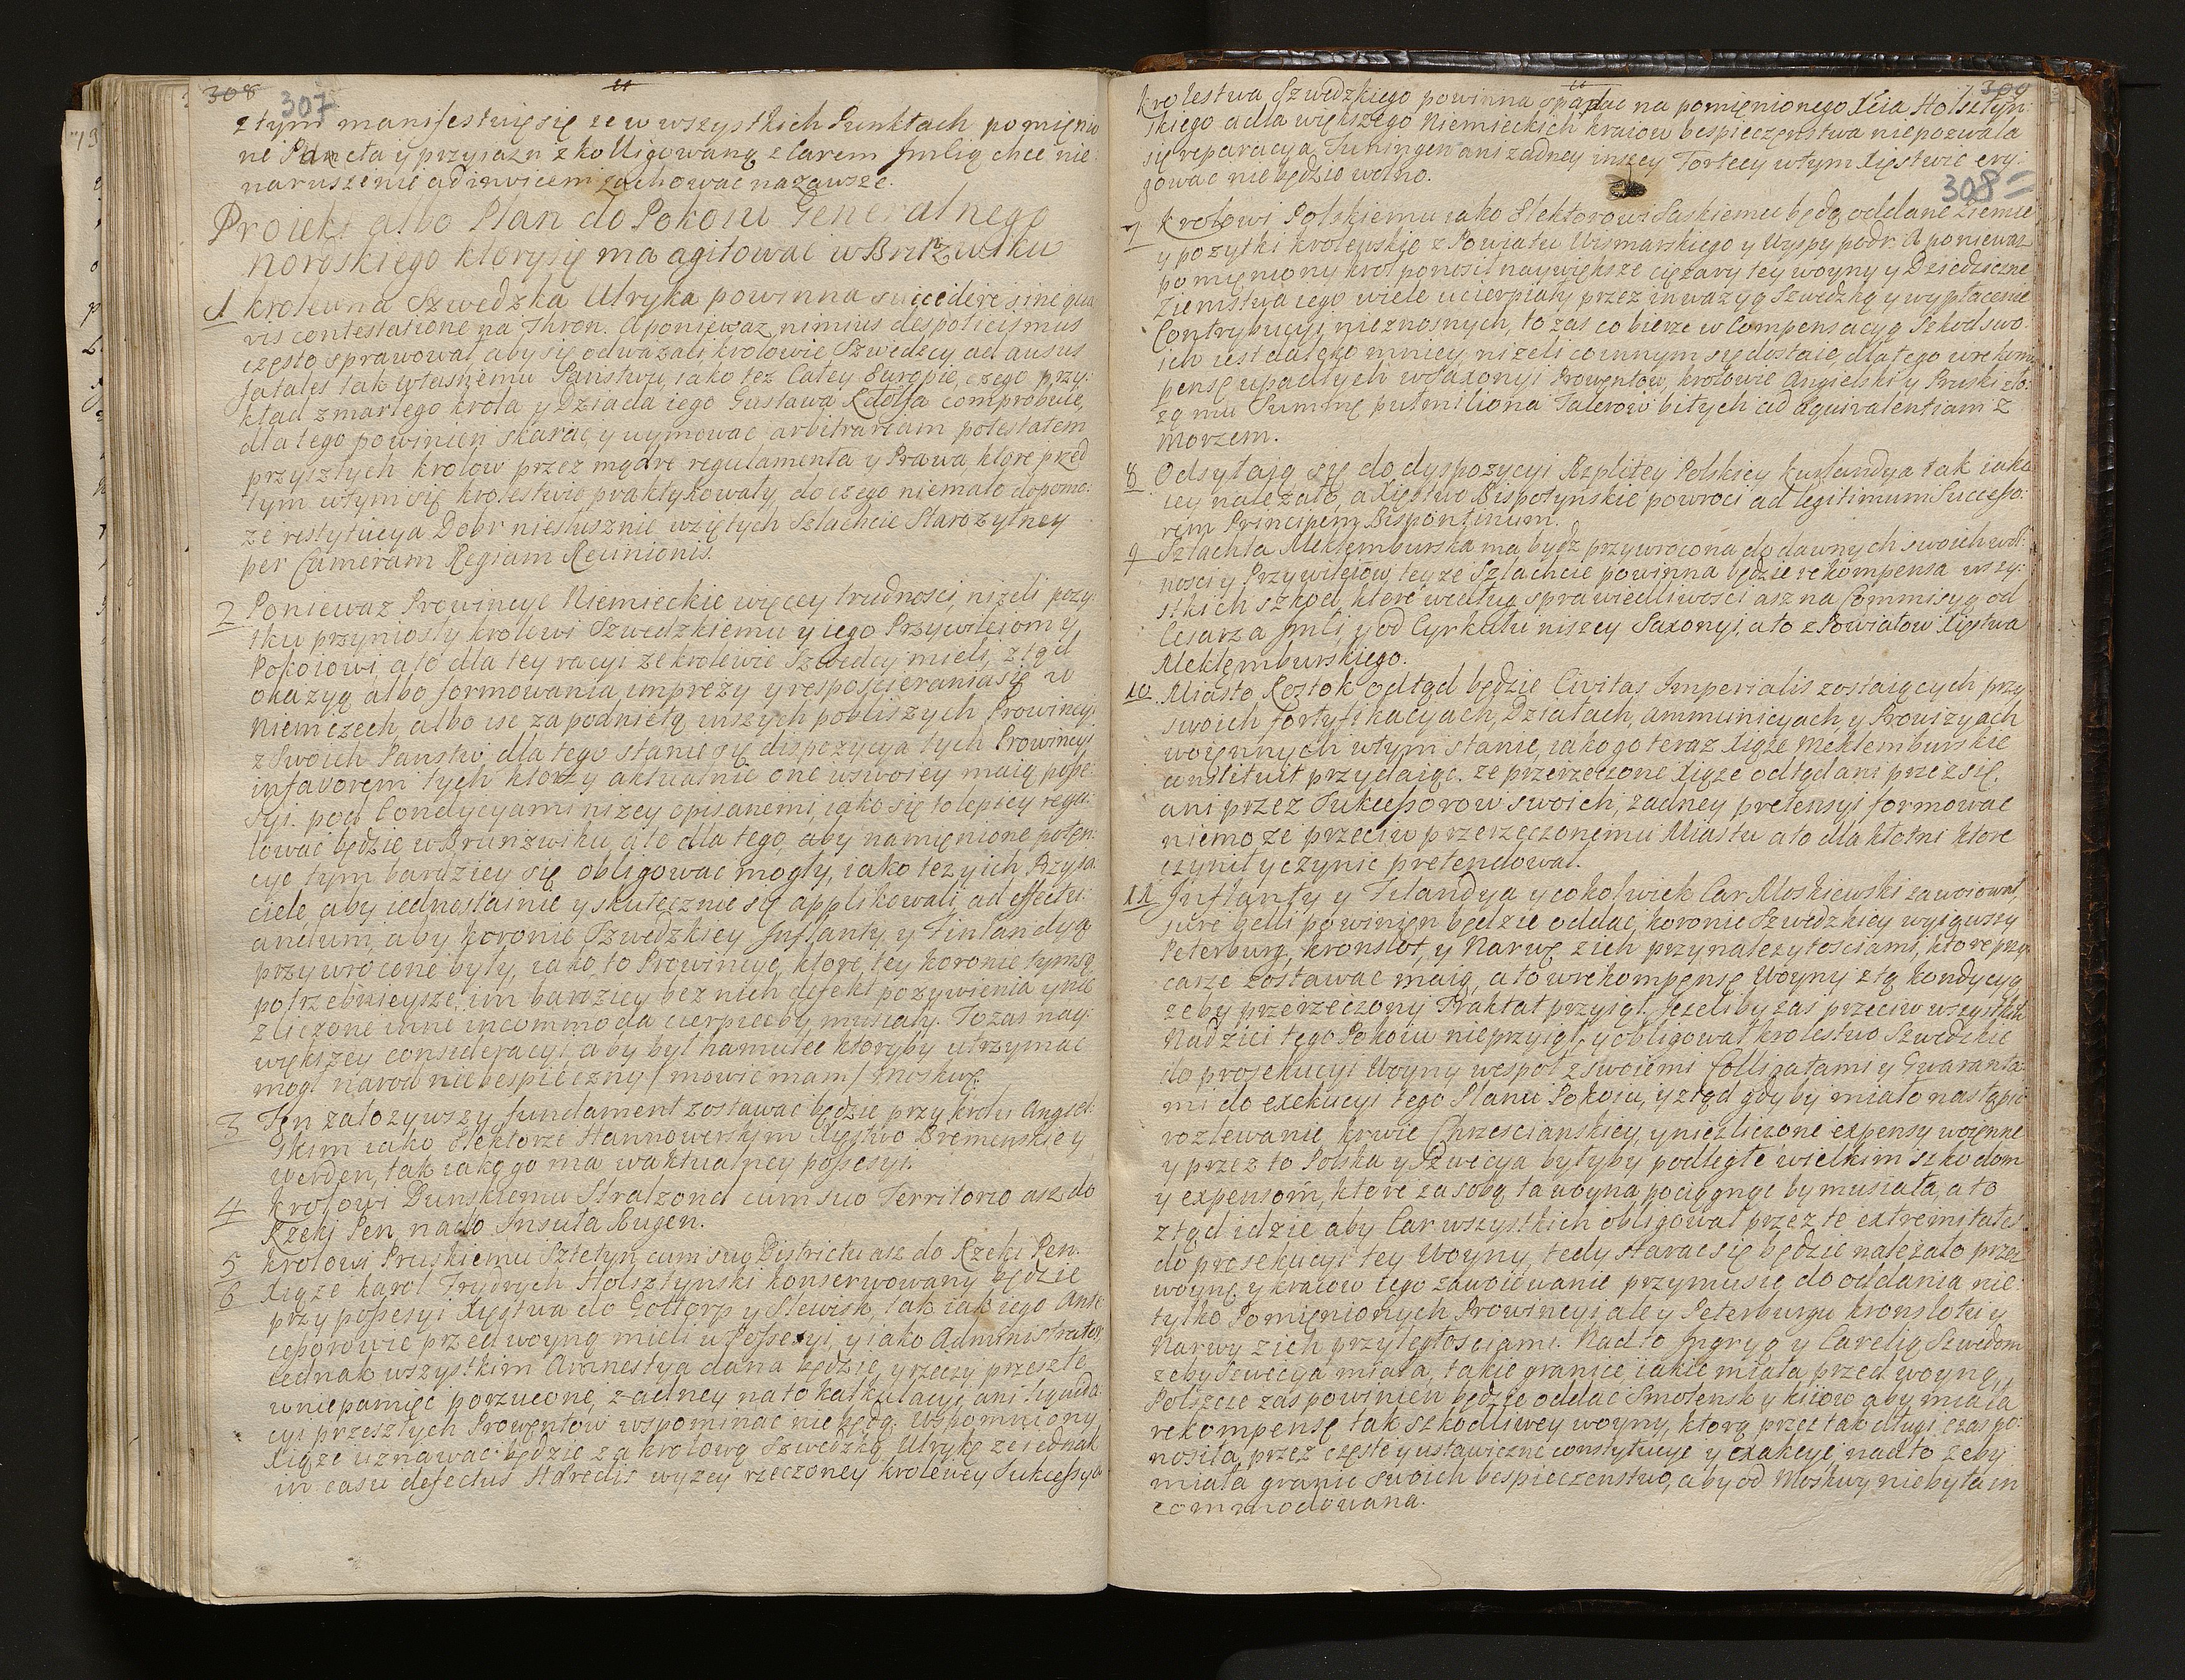 308
307
z tym manifestuię się ze w wszystkich Punktach pomięnio
ne Pancta y przyiazn z kolligowaną z Carem Jmścią chce nie:
naruszenie ad invicem zachować nazawsze.
Proiekt albo Plan do Pokoiu Generalnego
noroskiego ktorysię ma agitować w Brnzwiku
1 krolewna Szwedzka Ulryka powinna succedere sine qua
vis contestatione na Thron. A poniewaz nimius despoticismus
często sprawował, aby się odwazali krolowie Szwedzcy ad ausus
fatales tak własnemu Państwu, iako tez Całey Europie, czego przy:
kład zmarłego krola y Dziada iego Gustawa Adolfa comprobuie,
dla tego powinien skarac y uymować arbitrariam potestatem
przyszłych krolow przez mądre regulamenta y Prawa ktore przed
tym w tym się krolestwie praktykowały, do czego niemało dopomo:
ze restytucya Dobr niesłusznie wziętych Szlachcie Starozytney
per Cameram Regiam Reunionis.
2 Poniewaz Prowincye Niemieckie więcey trudnosci, nizeli pozy:
tku przyniosły krolowi Szwedzkiemu y iego Przywileiom y
Pokoiowi, a to dla tey racyi ze krolowie Szwedcy mieli ztąd
okazyą albo formowania imprezy y respościerania się w
Niemczech, albo isc za podnietą inszych pobliszych Prowincyi
z Swoich Panstw, dla tego stanie się dispozycya tych Prowincyi
in favorem tych ktorzy aktualnie one w swoiey maią posse:
syi. pod Condycyami nizey opisanemi, iako się to lepiey regu:
lować będzie w Brunzwiku, a to dla tego, aby namięnione poten:
cye tym bardziey się obligować mogły, iako tez y ich Przyja:
ciele, aby iednostainie y skutecznie się applikowali, ad effectu:
andum, aby koronie Szwedzkiey Jnflanty y Finlandyą
przywrocone były, iako to Prowincye, ktore tey koronie tym są
potrzebnieysze, im bardziey bez nich defekt pozywienia y nie
zliczone inne incommoda cierpiećby musiały. To zas nay:
większey consideracyi, aby był hamulec ktoryby utrzymać
mogł narod niebespieczny / mowić mam / Moskwę.
3 Ten załozywszy fundament zostawać będzie przy krolu Angiel:
skim iako Elektorze Hannowerskim Xięstwo Bremenskie y
Werden, tak iako go ma w aktualney possesyi.
4 krolowi Dunskiemu Stralzond cum suo Territorio asz do
Rzeki Pen, nado Jnsuła Rugen.
5 krolowi Pruskiemu Sztetyn cum suo Districtu asz do Rzeki Pen.
6 Xiąze karol Frydrych Holsztynski konserwowany będzie
przy possesyi Xięstwa do Gottorp y Slewisk, tak iak iego Ante
cessorowie przed woyną mieli w Possesyi, y iako Administrator,
iednak wszystkim Amnestya dana będzie, y rzeczy przeszłe
w niepamięć porzucone, zadney na to kalkulacyi ani likwida:
cyi przeszłych Prowentow wspominać nie będą. Wspomniony
Xiąze uznawać będzie za krolową Szwedzką Ulrykę ze iednak
in casu defectus Haredis wyzey rzeczoney krolewey Sukcessya
309
308
krolestwa Szwedzkiego powinna spadać na pomięnionego Xcia Holsztyn:
skiego a dla większego Niemieckich kraiow bespieczęnstwa niepozwala
się reparacya Tuningen ani zadney inszey Fortecy w tym Xięstwie ery:
gować nie będzie wolno.
7 krolowi Polskiemu iako Elektorowi Saskiemu będą oddane Ziemie
y pozytki krolewskie z Powiatu Wismarskiego y Wyspy podr. A poniewaz
pomięniony krol ponosił naywiększe cięzary tey woyny y Dziedziczne
Ziemstwa iego wiele ucierpiały przez inwazyą Szwedzką y wypłacenie
Contrybucyi nieznosnych, to zas co bierze w Compensacyą Szkod swo:
ich iest daleko mniey nizeli co innym się dostaie, dla tego w rekom:
pensę upadłych w Saxonyi Prowentow, krolowie Angielski y Pruski zło:
zą mu Summę pułmiliona Talerow bitych ad aquivalentiam z
morzem.
8 Odsyłaią się do dyspozycyi Rzplitey Polskiey Kurlandya tak iako
iey nalezało, a Xięstwo Bispotynskie powroci ad legitimum Successo:
rem Principem Bispontinum.
9 Szlachta Meklemburska ma bydz przywrocona do dawnych swoich wol:
nosci y Przywileiow, teyze Szlachcie powinna będzie rekompensa wszy:
stkich szkod, ktore według sprawiedliwosci asz na Commisyą od
Cesarza Jmści y od Cyrkułu niszey Saxonyi, a to z Powiatow Xięstwa
Meklemburskiego.
10 Miasto Rostok odtąd będzie Civitas Imperialis zostaiących przy
swoich fortyfikacyach, Działach, ammunicyach, y Prowizyach
woiennych w tym stanie, iako go teraz Xiąze Meklemburskie
constituit przydaiąc. ze przerzeczone Xiąze odtąd ani przez się,
ani przez Sukcessorow swoich, zadney pretensyi formować
niemoze przeciw przerzeczonemu Miastu a to dla kłotni ktore
czynił y czynic pretendował.
11 Jnflanty y Finlandya y cokolwiek Car Moskiewski zawoiował,
jure belli powinien będzie oddać koronie Szwedzkiey wyiąwszy
Peterburg, kronslot, y Narwę z ich przynalezytosciami, ktore przy
carze zostawać maią, a to w rekompensę Woyny z tą kondycyą
zeby przerzeczony Traktat przyiął. Jezeliby zas przeciw wszystkich
Nadziei tego Pokoiu nieprzyiął, y obligował krolestwo Szwedskie
do prosekucyi Woyny wespoł z swoiemi Colligatami y Gwaranta:
mi do exekucyi tego Planu Pokoiu, y ztąd gdyby miało nastąpić
rozlewanie krwie Chrzescianskiey y niezliczone expensy woienne
y przez to Polska y Szwecya byłyby podległe wielkim szkodom
y expensom, ktore za sobą ta woyna pociągnąć by musiała, a to
ztąd idzie aby Car wszystkich obligował przez te extremitates
do prosekucyi tey Woyny, tedy starać się będzie nalezało przez
woynę y kraiow iego zawoiowanie przymusić do oddania nie:
tylko Pomięnionych Prowincyi ale y Peterburgu kronslotu y
Narwy z ich przyległosciami. Nad to Jngryą y Carelią Szwedom
zeby Szwecya miała, takie granice iakie miała przed woyną,
Polszcze zas powinien będzie oddać Smolensk y kiiow aby miała
rekompensę tak szkodliwey woyny, ktorą przez tak długi czas po:
nosiła, przez częste y ustawiczne constytucye y exakcye, nad to zeby
miała granic swoich bespieczenstwo, aby od Moskwy niebyła in
commodowana.